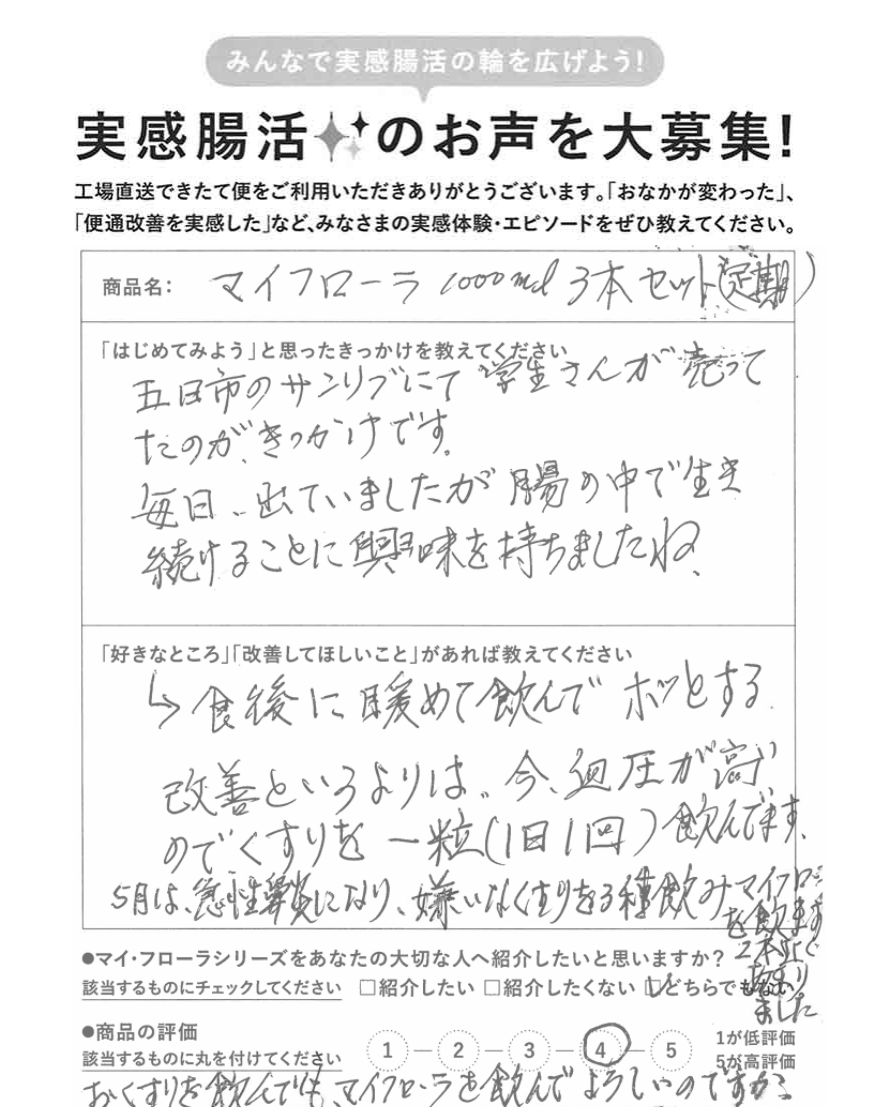 みんなで実感腸活の輪を広げよう!
実感腸活のお声を大募集!
工場直送できたて便をご利用いただきありがとうございます。「おなかが変わった」、
「便通改善を実感した」など、みなさまの実感体験・エピソードをぜひ教えてください。
商品名: マイフローラ 1000ml 3本セット(定期)
「はじめてみよう」と思ったきっかけを教えてください
五日市のサンリブにて学生さんが売って
たのが、きっかけです。
毎日、出ていましたが腸の中で生き
続けることに興味を持ちましたね、
「好きなところ」「改善してほしいこと」があれば教えてください
↳食後に暖めて飲んでホッとする
改善というよりは。今、血圧が高い
のでくすりを一粒(1日1回)飲んでます。
5月は、急性膵炎になり、嫌いなくすりを3種飲みマイフローラ
を飲まず
2本近く
あまり
ました
●マイ・フローラシリーズをあなたの大切な人へ紹介したいと思いますか?
該当するものにチェックしてください □紹介したい □紹介したくない ☑どちらでもない
●商品の評価
該当するものに丸を付けてください 1 2 3 4 5 1が低評価
5が高評価
おくすりを飲んでてもマイフローラを飲んでよろしいのですか?